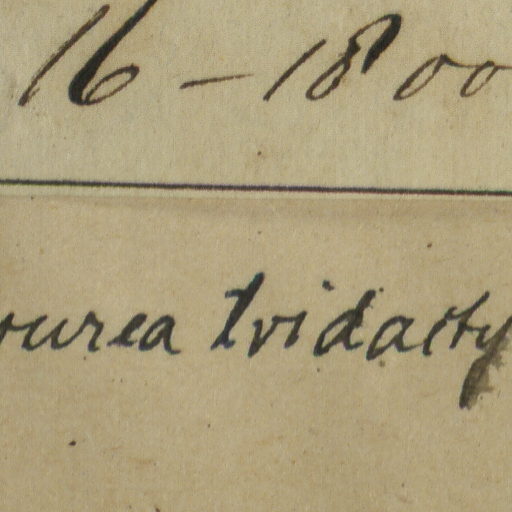 16 - 1800
ourea tridacty